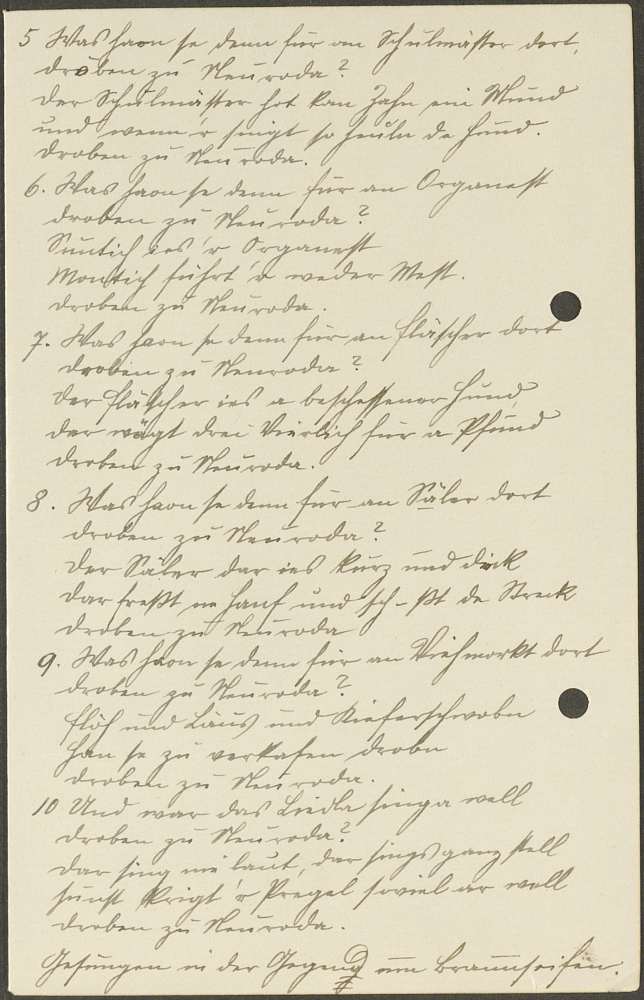 5 Was haon se denn für an Schulmäster dort,
droben zu Neuroda?
Der Schulmäster hot kan Zahn ein Mund
und wenn 'r singt so heuln de Hund.
Droben zu Neuroda.
6. Was haon se denn für an Organest
droben zu Neuroda?
Suntich ies 'r Organest
Montich führt 'r weder Mest.
droben zu Neuroda.
7. Was haon se denn für an Fläscher dort
droben zu Neuroda?
Der Fläscher ies a beschessener Hund,
dar wägt drei Vierlich für a Pfund
droben zu Neuroda.
8. Was haon se denn für an Säler dort
droben zu Neuroda?
Der Säler dar ies kurz und dick
dar freßt na Hanf und sch-ßt de Streck
droben zu Neuroda
9. Was haon se denn für an Viehmorkt dort
droben zu Neuroda?
Flöh und Läus und Kieferschwobn
han se zu verkafen drobn
droben zu Neuroda.
10 Und war das Liedla singa well
droben zu Neuroda?
dar sing nie laut, dar sings ganz stell
sunst krigt 'r Pregel soviel ar well
droben zu Neuroda.
Gesungen in der Gegend um Braunseifen.